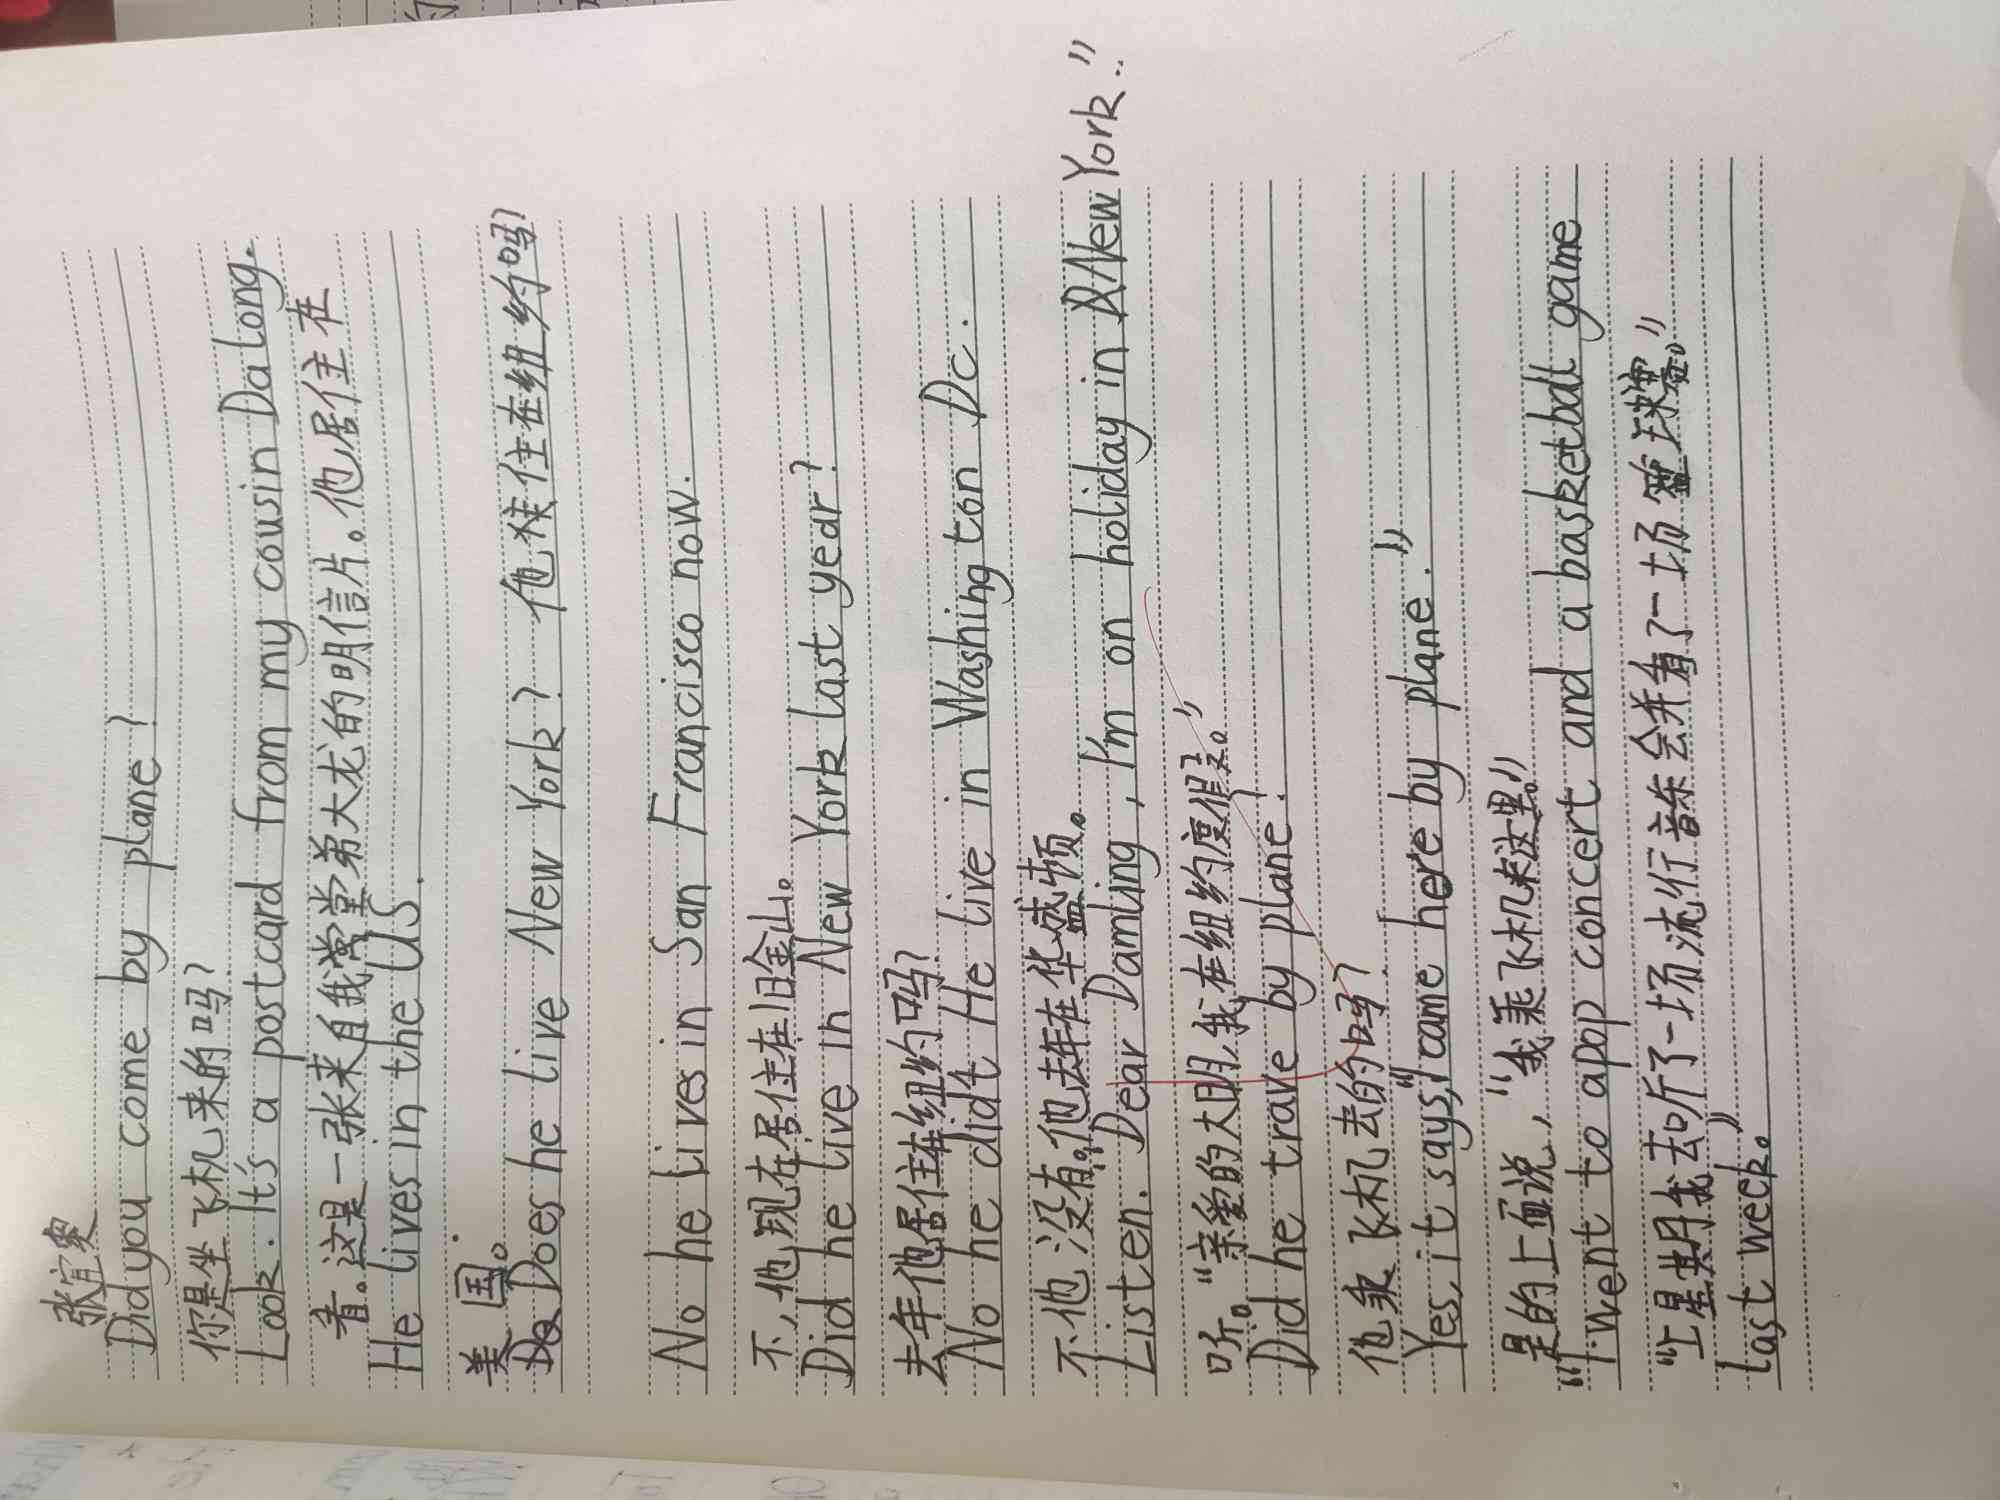 张宜奥
Did you come by plane?
你是坐飞机来的吗?
Look. It's a postcard from my cousin Dalong.
看。这是一张来自我堂弟大龙的明信片。他居住在
He lives in the US.
美国。
Does he live New York? 他住在纽约吗?
No he lives in San Francisco now.
不,他现在居住在旧金山。
Did he live in New York last year?
去年他居住在纽约吗?
No he didt He live in Washington Dc.
不他没有。他去年在华盛顿。
Listen. "Dear Damling, I'm on holiday in New York."
听。"亲爱的大明,我在纽约度假。"
Did he trave by plane?
他乘飞机去的吗?
Yes, it says, "I came here by plane."
是的上面说,"我乘飞机来这里。"
"I went to a pop concert and a basketball game
"上星期我去听了一场流行音乐会并看了一场篮球赛。"
last week."